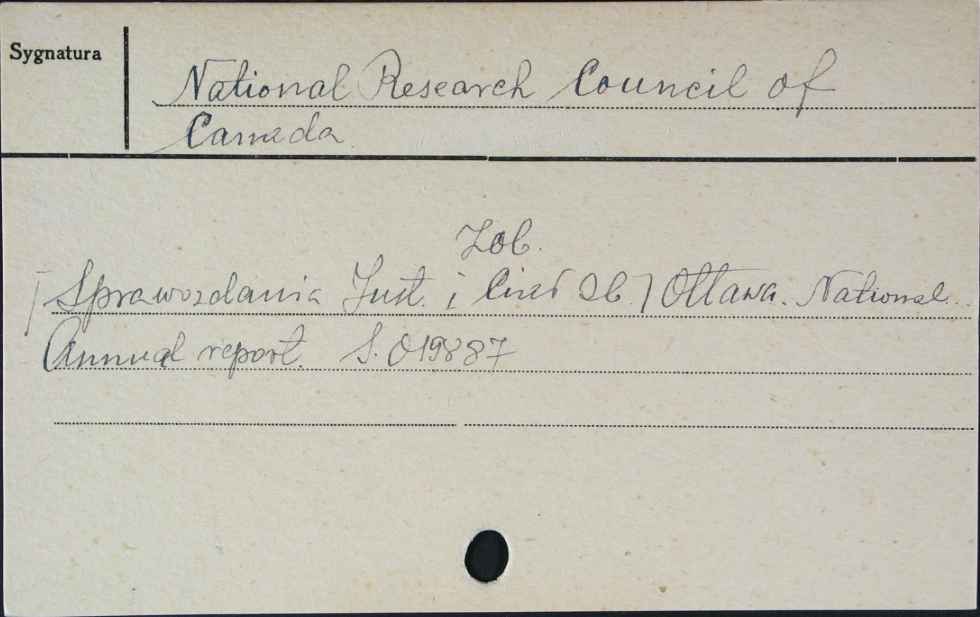 Sygnatura
National Research Council of
Canada
Zob.
Sprawozdania Inst. i Ottawa. National
Annual report. S. 019887